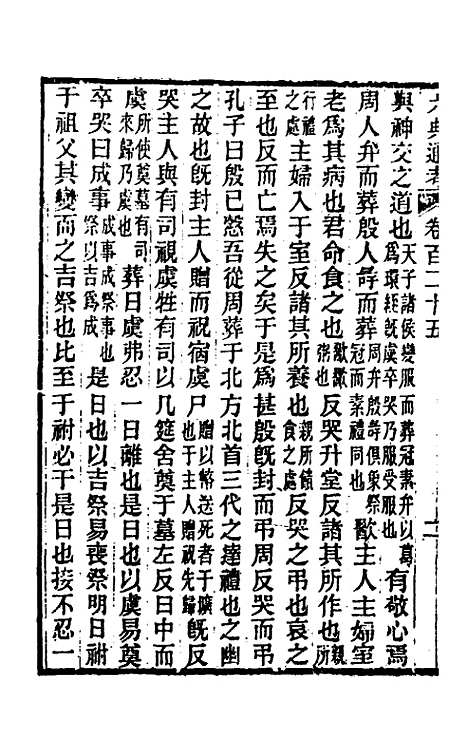 六典通考 卷百二十五
與神交之道也天子諸侯變服而葬冠素弁以葛為環絰既虞卒哭乃服受服也有敬心焉
周人弁而葬殷人冔而葬周弁殷冔俱象祭冠而素禮同也歠主人主婦室
老爲其病也君命食之也歠歠粥也反哭升堂反諸其所作也親所
行禮之處主婦入于室反諸其所養也親所饋食之處反哭之弔也哀之
至也反而亡焉失之矣于是爲甚殷旣封而弔周反哭而弔
孔子曰殷已慤吾從周葬于北方北首三代之達禮也之幽
之故也旣封主人贈而祝宿虞尸贈以幣送死者于壙也于主人贈祝先歸旣反
哭主人與有司視虞牲有司以几筵舍奠于墓左反日中而
虞所使奠墓有司來歸乃虞也葬日虞弗忍一日離也是日也以虞易奠
卒哭曰成事成事成祭事也祭以吉爲成是日也以吉祭易喪祭明日祔
于祖父其變而之吉祭也比至于祔必于是日也接不忍一